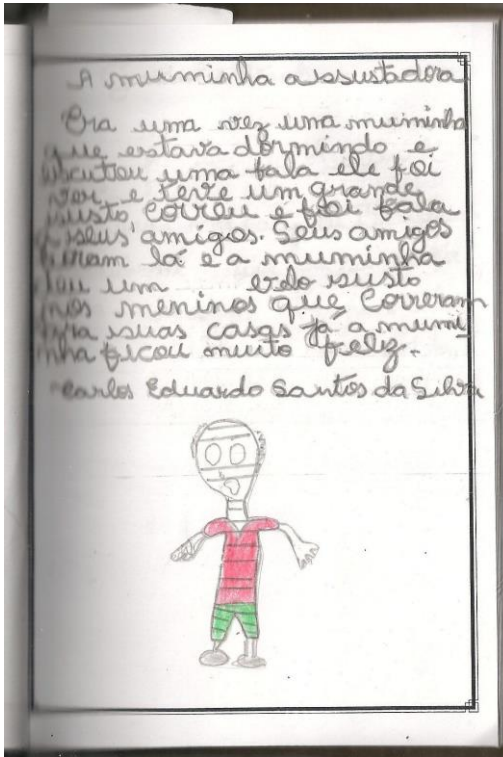 A muminha assustadora
Era uma vez uma muminha
que estava dormindo e
escutou uma fala ele foi
ver e teve um grande
susto correu e foi fala
a seus amigos. Seus amigos
foram lá e a muminha
deu um erdo susto
nos meninos que correram
pra suas casas já a mumi-
nha ficou muito feliz.
Carlos Eduardo Santos da Silva